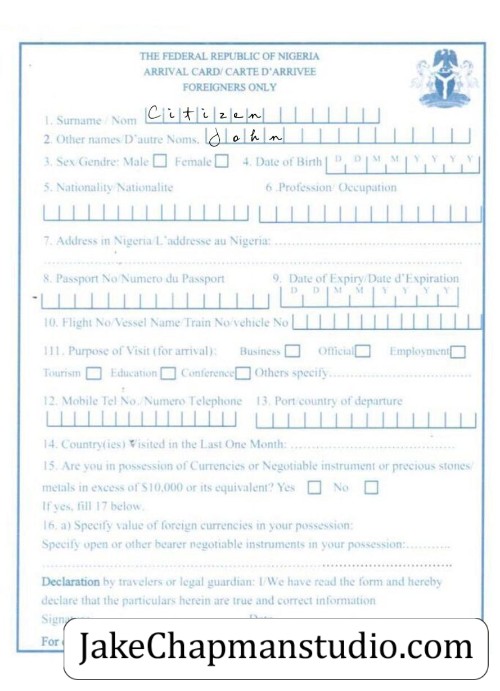 THE FEDERAL REPUBLIC OF NIGERIA
ARRIVAL CARD/ CARTE D'ARRIVEE
FOREIGNERS ONLY
1. Surname / Nom Citizen
2. Other names/D'autre Noms, John
3. Sex/Gendre: Male Female 4. Date of Birth D D M M Y Y Y Y
5. Nationality/Nationalite 6 .Profession/ Occupation
7. Address in Nigeria/L'addresse au Nigeria:
8. Passport No/Numero du Passport 9. Date of Expiry/Date d'Expiration
D D M M Y Y Y Y
10. Flight No/Vessel Name/Train No/vehicle No
111. Purpose of Visit (for arrival): Business Official Employment
Tourism Education Conference Others specify
12. Mobile Tel No./Numero Telephone 13. Port/country of departure
14. Country(ies) Visited in the Last One Month:
15. Are you in possession of Currencies or Negotiable instrument or precious stones/
metals in excess of $10,000 or its equivalent? Yes No
If yes, fill 17 below.
16. a) Specify value of foreign currencies in your possession:
Specify open or other bearer negotiable instruments in your possession:
Declaration by travelers or legal guardian: I/We have read the form and hereby
declare that the particulars herein are true and correct information
For
JakeChapmanstudio.com